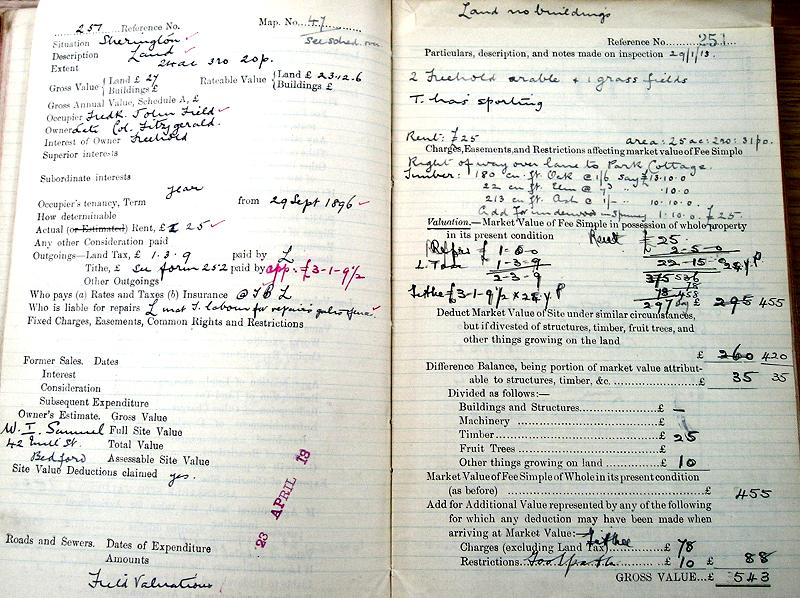 257 Reference No. Map. No. 47
Situation Sherington. see sched. over
Description Land
Extent 24ac 3ro 20p.
Gross Value { Land £ 27 Rateable Value { Land £ 23.12.6
Buildings £ Buildings £
Gross Annual Value, Schedule A, £
Occupier Fredk. John Field
Owner Late Col. Fitzgerald.
Interest of Owner Freehold
Superior interests
Subordinate interests
year
Occupier's tenancy, Term from 29 Sept 1896
How determinable
Actual (or Estimated) Rent, £ 25
Any other Consideration paid
Outgoings—Land Tax, £ 1.3.9 paid by L
Tithe, £ see form 252 paid by app: £3-1-9½
Other Outgoings
Who pays (a) Rates and Taxes (b) Insurance @ T B L
Who is liable for repairs L mat T. labour for repairs
Fixed Charges, Easements, Common Rights and Restrictions
Former Sales. Dates
Interest
Consideration
Subsequent Expenditure
Owner's Estimate. Gross Value
W. I. Samuel Full Site Value
42 Mill St. Total Value
Bedford Assessable Site Value
Site Value Deductions claimed yes.
23 APRIL 13
Roads and Sewers. Dates of Expenditure
Amounts
Field Valuations
Land no buildings
Reference No. 251
Particulars, description, and notes made on inspection 29/1/13.
2 Freehold arable + 1 grass fields
T. has sporting
Rent: £25 area: 25ac: 2ro: 31po.
Charges, Easements, and Restrictions affecting market value of Fee Simple
Right of way over lane to Park Cottage.
Timber: 180 cu ft. Oak @ 1/6 say £13.10.0
22 cu ft. Elm @ .10.0
213 cu ft. Ash @ 1/- 10.10.0
Add for underwood - spinney 1.10.0. £25.
Valuation.—Market Value of Fee Simple in possession of whole property
in its present condition Rent £ 25.
Repairs £ 1-0-0 2-5-0
L. Tax 1-3-9 22-15-0 25 y.P
2-3-9
Tithe £3-1-9½ x 25 y.P 297 295 455
Deduct Market Value of Site under similar circumstances,
but if divested of structures, timber, fruit trees, and
other things growing on the land
£ 260 420
Difference Balance, being portion of market value attribut-
able to structures, timber, &c. £ 35 35
Divided as follows:—
Buildings and Structures £ —
Machinery £
Timber £ 25
Fruit Trees £
Other things growing on land £ 10
Market Value of Fee Simple of Whole in its present condition
(as before) £ 455
Add for Additional Value represented by any of the following
for which any deduction may have been made when
arriving at Market Value:— Tithe
Charges (excluding Land Tax) £ 78
Restrictions Footpath £ 10 £ 88
GROSS VALUE...£ 543